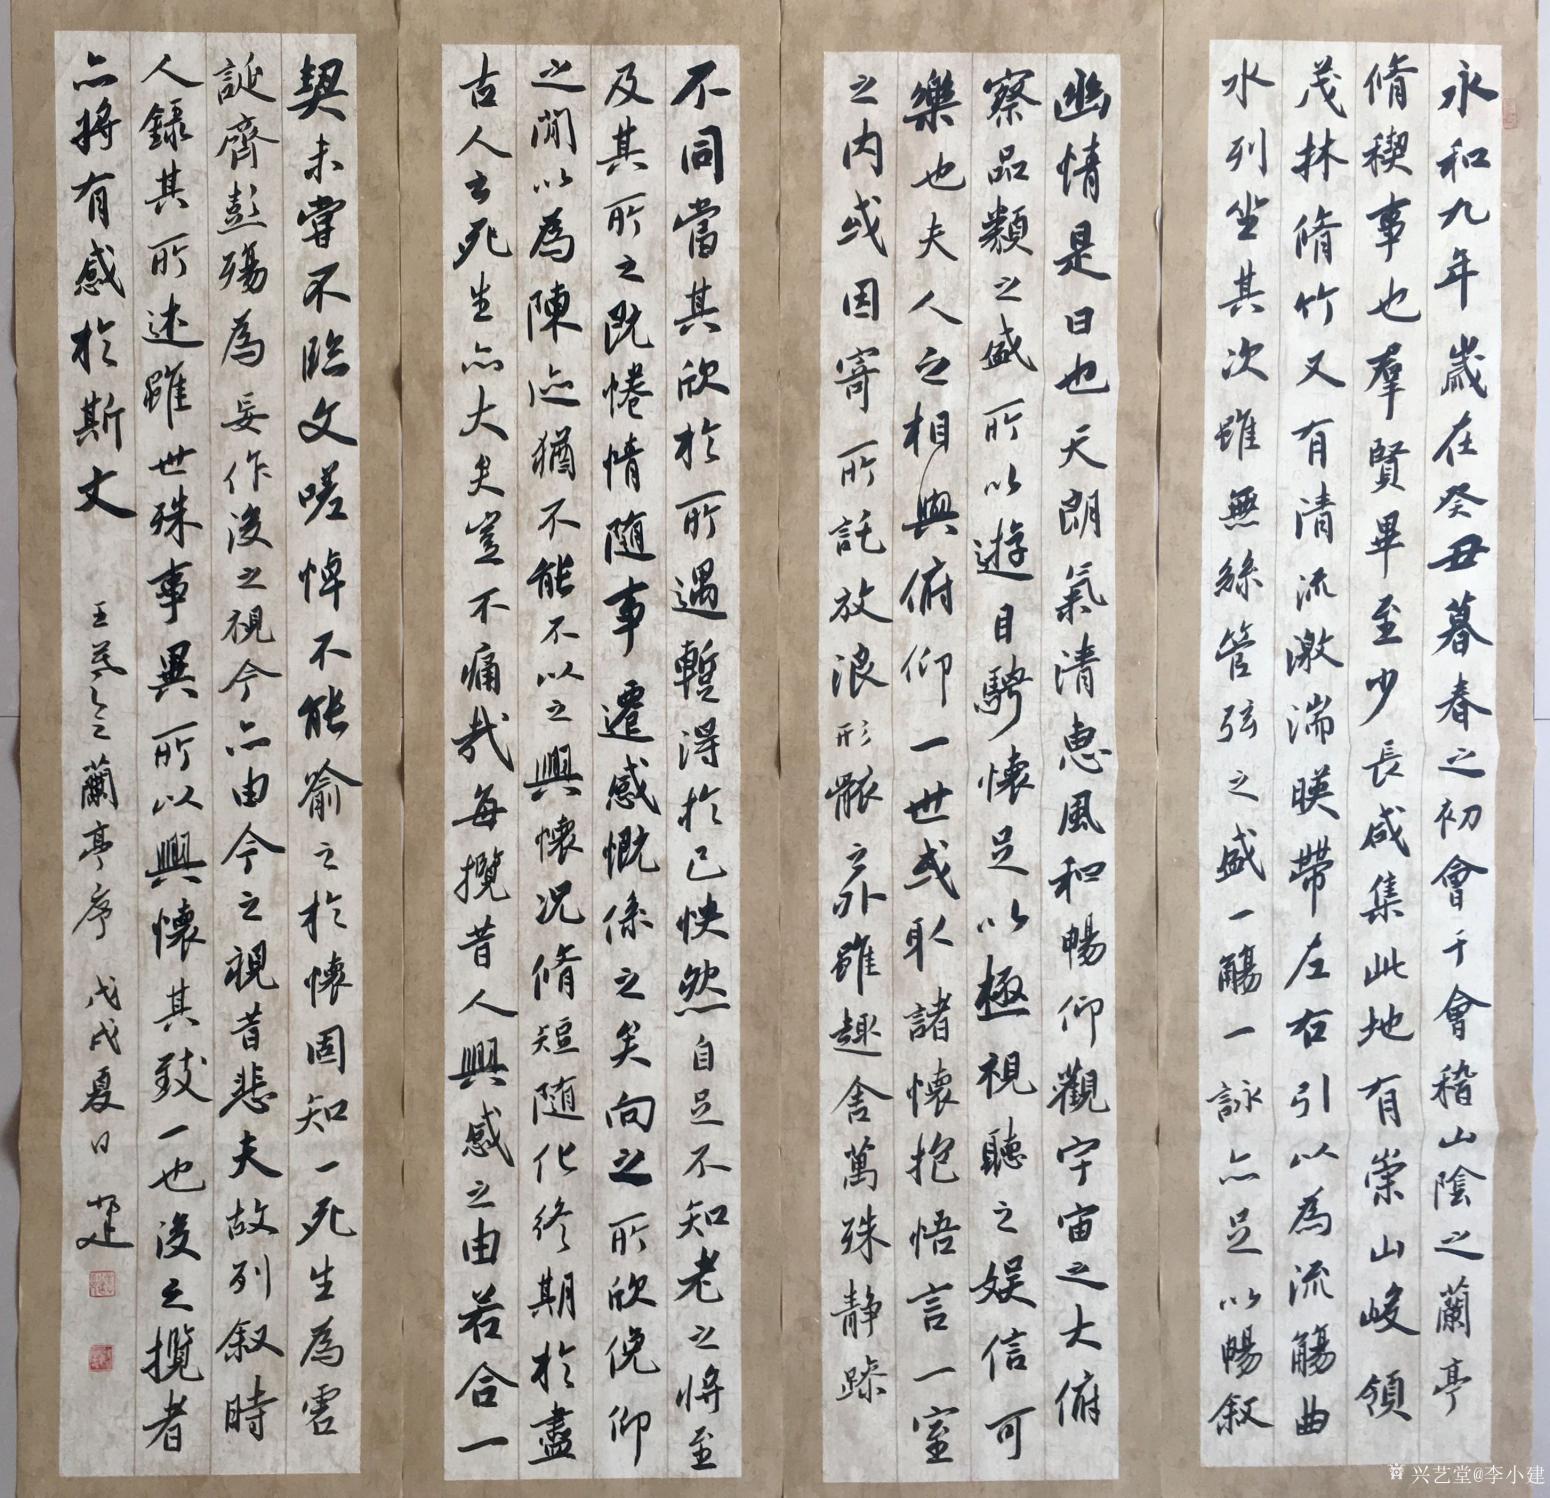 永和九年歲在癸丑暮春之初會于會稽山陰之蘭亭
脩稧事也羣賢畢至少長咸集此地有崇山峻領
茂林脩竹又有清流激湍暎帶左右引以為流觴曲
水列坐其次雖無絲管弦之盛一觴一詠亦足以暢敘
幽情是日也天朗氣清惠風和暢仰觀宇宙之大俯
察品類之盛所以遊目騁懷足以極視聽之娱信可
樂也夫人之相與俯仰一世或取諸懷抱悟言一室
之内或因寄所託放浪形骸之外雖趣舍萬殊静躁
不同當其欣於所遇暫得於己怏然自足不知老之將至
及其所之既惓情随事遷感慨係之矣向之所欣俛仰
之間以為陳迹猶不能不以之興懷况脩短随化終期於盡
古人云死生亦大矣豈不痛哉每攬昔人興感之由若合一
契未嘗不臨文嗟悼不能喻之於懷固知一死生為虚
誕齊彭殤為妄作後之視今亦由今之視昔悲夫故列叙時
人錄其所述雖世殊事異所以興懷其致一也後之攬者
亦將有感於斯文 王羲之蘭亭序 戊戌夏日 小建
兴艺堂@李小建